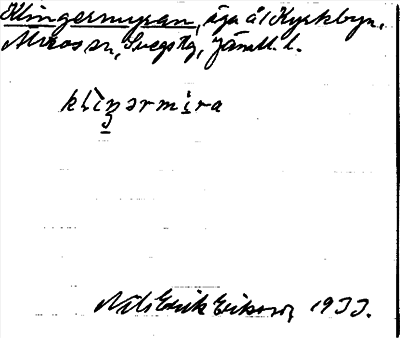 Klingermyran, äga å l Kyrkbyn,
Sn, Svegs tg, Jämtl. l.
klìŋərmira
Nils Erik Erikson, 1933.